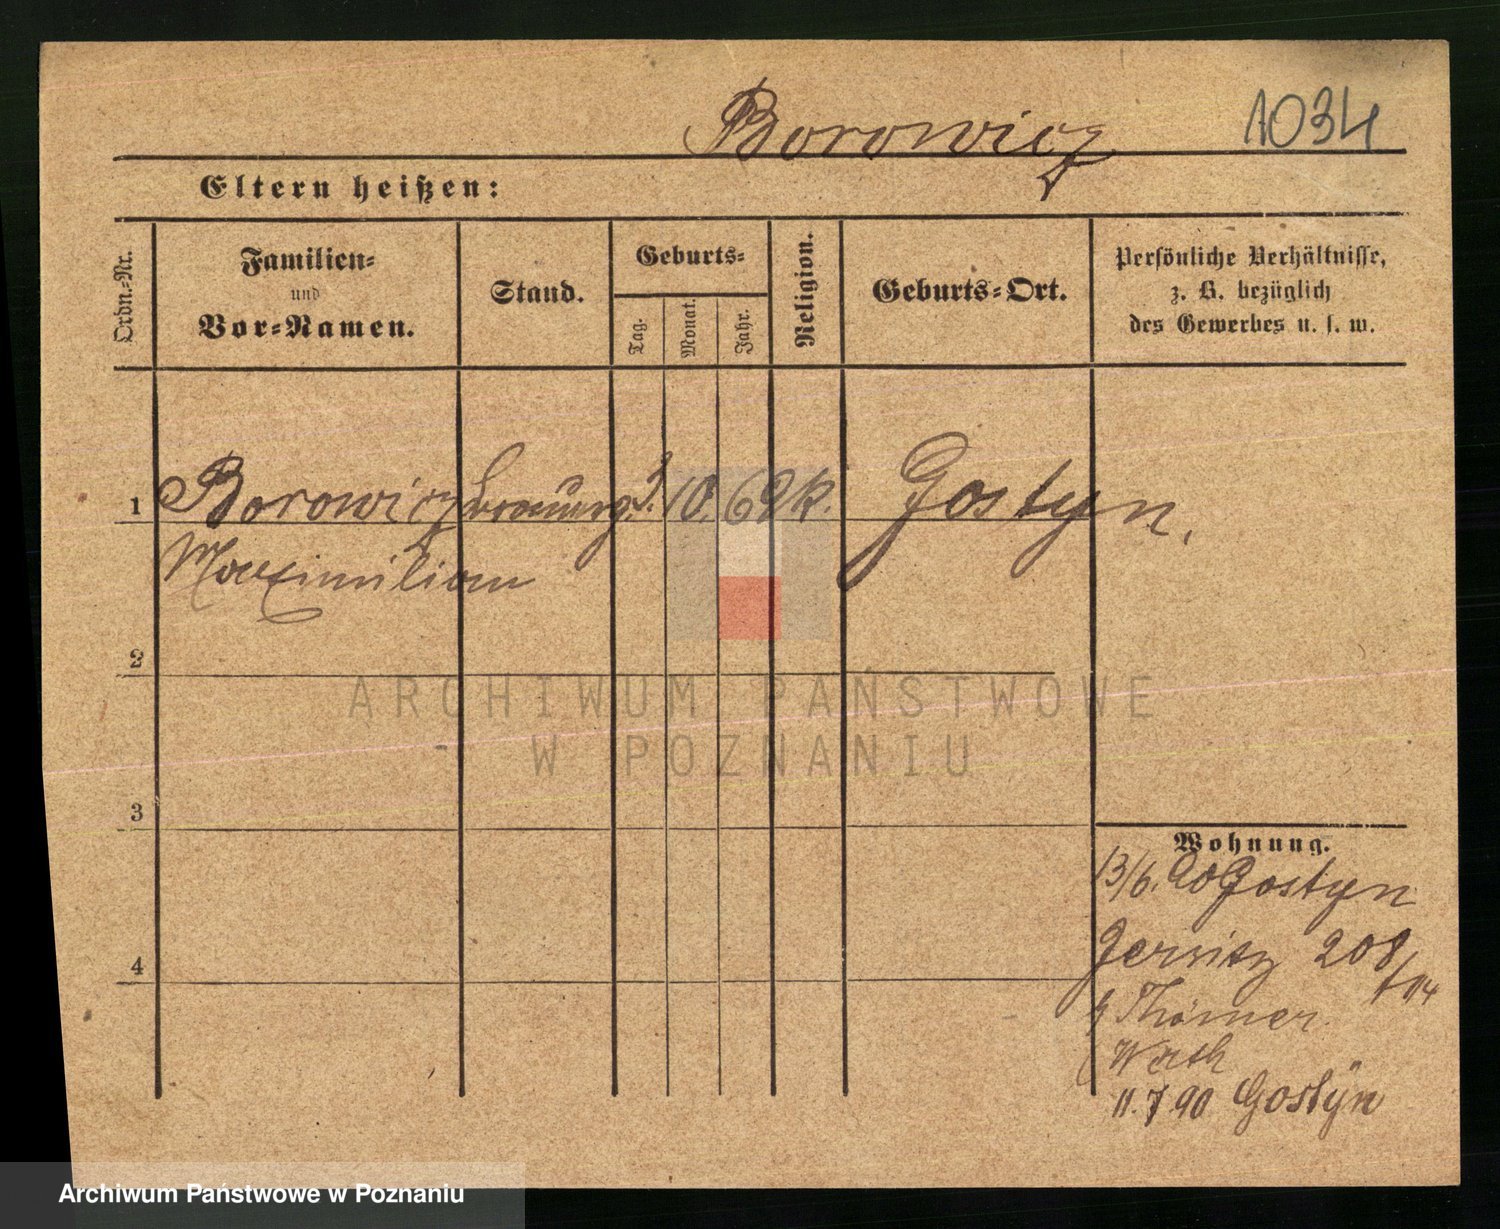 Borowicz 1034
Eltern heißen:
Ordn.-Nr.
Familien-
und
Vor-Namen.
Stand.
Geburts-
Tag.
Monat.
Jahr.
Religion.
Geburts-Ort.
Persönliche Verhältnisse,
z. B. bezüglich
des Gewerbes u. s. w.
1 Borowicz 3. 10. 69 k. Gostyn.
Maximilian
2
ARCHIWUM PAŃSTWOWE
W POZNANIU
3
Wohnung.
13/6. 90 Gostyn
4
Jersitz 208
Thörner
Werth
11.7 90 Gostÿn
Archiwum Państwowe w Poznaniu